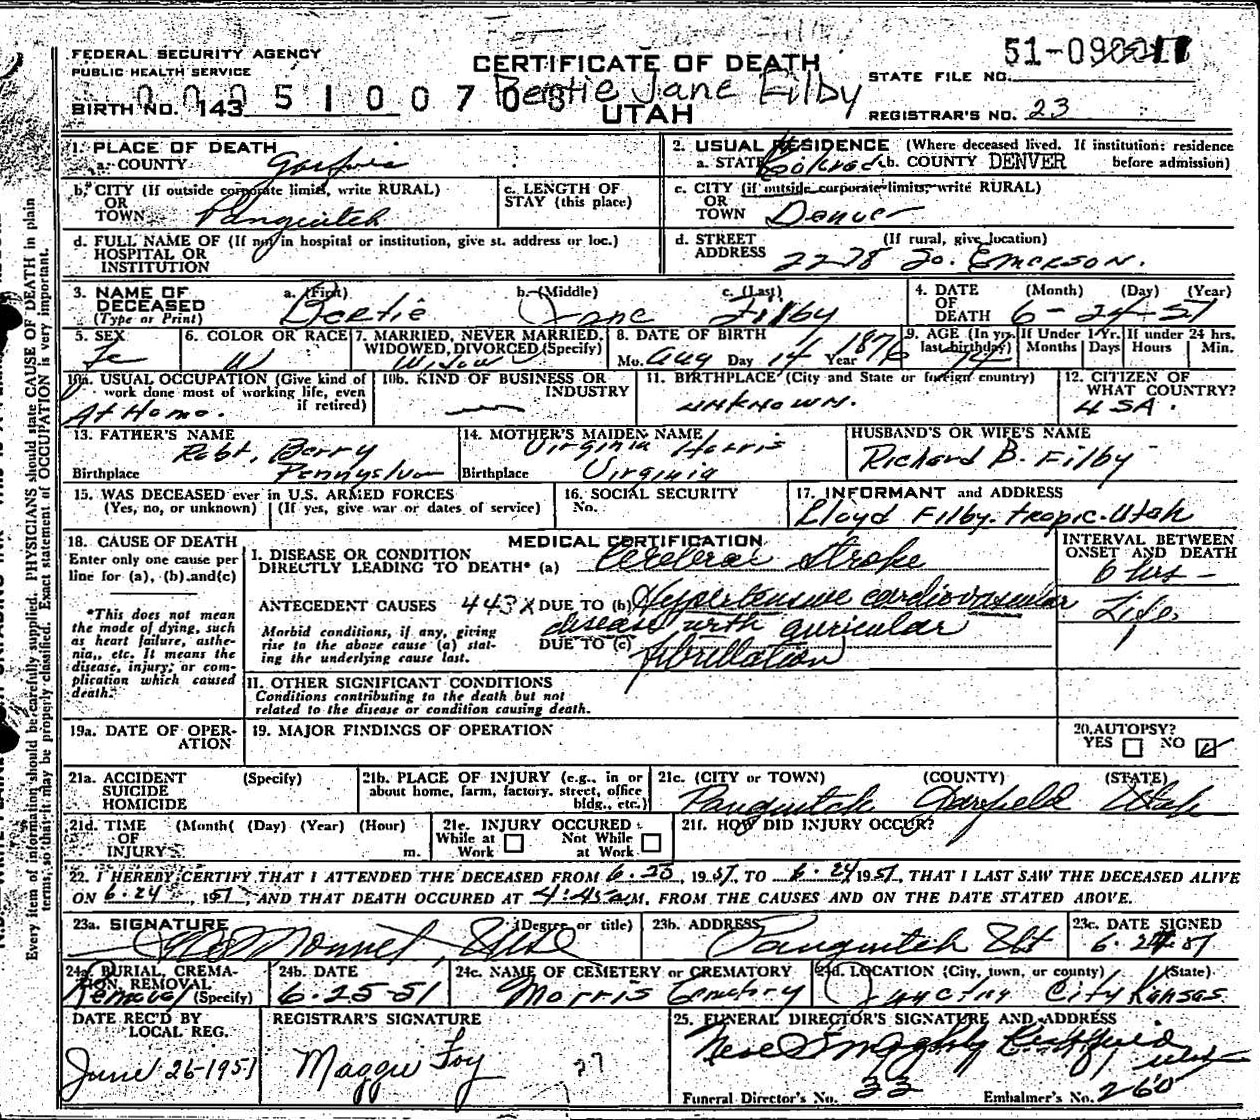 FEDERAL SECURITY AGENCY
PUBLIC HEALTH SERVICE
BIRTH NO. 143
0 0 0 5 1 0 0 7 0 8
CERTIFICATE OF DEATH
Bertie Jane Filby
UTAH
51-090017
STATE FILE NO.
REGISTRAR'S NO. 23
1. PLACE OF DEATH
a. COUNTY
2. USUAL RESIDENCE (Where deceased lived. If institution: residence before admission)
a. STATE b. COUNTY DENVER
b. CITY (If outside corporate limits, write RURAL)
OR
TOWN Panguitch
c. LENGTH OF
STAY (this place)
c. CITY (if outside corporate limits, write RURAL)
OR
TOWN Denver
d. FULL NAME OF (If not in hospital or institution, give st. address or loc.)
HOSPITAL OR
INSTITUTION
d. STREET (If rural, give location)
ADDRESS 2278 So. Emerson.
3. NAME OF DECEASED
(Type or Print)
a. (First) b. (Middle) c. (Last)
Bertie Jane Filby
4. DATE OF DEATH (Month) (Day) (Year)
6-24-51
5. SEX
Fe
6. COLOR OR RACE
W
7. MARRIED, NEVER MARRIED,
WIDOWED, DIVORCED (Specify)
Widow
8. DATE OF BIRTH
Mo. Aug Day 14 Year 1876
9. AGE (In yrs. last birthday)
If Under 1 Yr. Months Days
If under 24 hrs. Hours Min.
10a. USUAL OCCUPATION (Give kind of
work done most of working life, even
if retired)
At Home.
10b. KIND OF BUSINESS OR
INDUSTRY
11. BIRTHPLACE (City and State or foreign country)
unknown.
12. CITIZEN OF
WHAT COUNTRY?
USA.
13. FATHER'S NAME
Robt. Berry
Birthplace Pennyslva
14. MOTHER'S MAIDEN NAME
Virginia Harris
Birthplace Virginia
HUSBAND'S OR WIFE'S NAME
Richard B. Filby
15. WAS DECEASED ever in U.S. ARMED FORCES
(Yes, no, or unknown) (If yes, give war or dates of service)
16. SOCIAL SECURITY
No.
17. INFORMANT and ADDRESS
Lloyd Filby. tropic-Utah
18. CAUSE OF DEATH
Enter only one cause per
line for (a), (b) and (c)
*This does not mean
the mode of dying, such
as heart failure, asthe-
nia, etc. It means the
disease, injury, or com-
plication which caused
death.
MEDICAL CERTIFICATION
I. DISEASE OR CONDITION
DIRECTLY LEADING TO DEATH* (a) Cerebral stroke
ANTECEDENT CAUSES 443X DUE TO (b) Hypertensive cardiovascular
disease with auricular
Morbid conditions, if any, giving
rise to the above cause (a) stat-
ing the underlying cause last.
DUE TO (c) fibrillation
INTERVAL BETWEEN
ONSET AND DEATH
6 hrs -
Life.
II. OTHER SIGNIFICANT CONDITIONS
Conditions contributing to the death but not
related to the disease or condition causing death.
19a. DATE OF OPER-
ATION
19. MAJOR FINDINGS OF OPERATION
20. AUTOPSY?
YES NO
21a. ACCIDENT (Specify)
SUICIDE
HOMICIDE
21b. PLACE OF INJURY (e.g., in or
about home, farm, factory, street, office
bldg., etc.)
21c. (CITY or TOWN) (COUNTY) (STATE)
Panguitch Garfield Utah
21d. TIME (Month) (Day) (Year) (Hour)
OF
INJURY m.
21e. INJURY OCCURED
While at Work Not While at Work
21f. HOW DID INJURY OCCUR?
22. I HEREBY CERTIFY THAT I ATTENDED THE DECEASED FROM 6-23, 1951, TO 6-24 1951, THAT I LAST SAW THE DECEASED ALIVE
ON 6-24, 1951, AND THAT DEATH OCCURED AT 4:45 a M, FROM THE CAUSES AND ON THE DATE STATED ABOVE.
23a. SIGNATURE (Degree or title)
23b. ADDRESS
Panguitch Ut
23c. DATE SIGNED
6-24-51
24a. BURIAL, CREMA-
TION, REMOVAL
Removal (Specify)
24b. DATE
6-25-51
24c. NAME OF CEMETERY or CREMATORY
Morris Cemetery
24d. LOCATION (City, town, or county) (State)
Junction City Kansas
DATE REC'D BY
LOCAL REG.
June 26-1951
REGISTRAR'S SIGNATURE
Maggie Foy 27
25. FUNERAL DIRECTOR'S SIGNATURE AND ADDRESS
Funeral Director's No. 33 Embalmer's No. 260
Every item of information should be carefully supplied. PHYSICIANS should state CAUSE OF DEATH in plain
terms, so that it may be properly classified. Exact statement of OCCUPATION is very important.